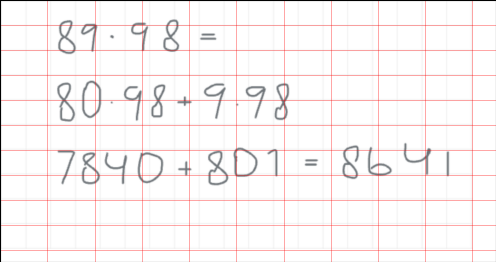 89·98 =
80·98 + 9·98
7840 + 801 = 8641